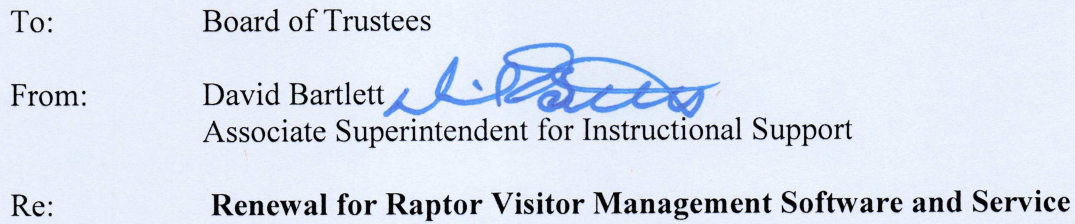 To: Board of Trustees
From: David Bartlett
Associate Superintendent for Instructional Support
Re: Renewal for Raptor Visitor Management Software and Service